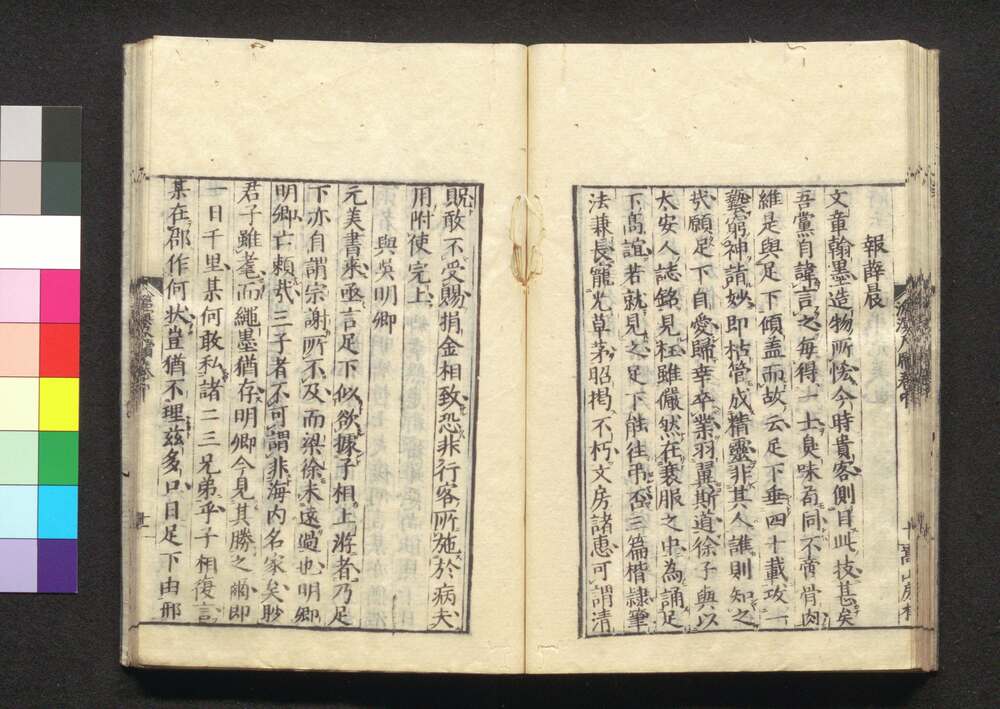 報薛晨
文章翰墨造物所恡今時貴客側目此技甚矣
吾黨自諱言之每得一士臭味苟同不啻骨肉
維是與足下傾盖而故云足下垂四十載攻一
藝窮神詣妙即枯管成精靈非其人誰則知之
狀願足下自愛歸幸卒業羽翼斯道徐子與以
太安人誌銘見枉雖儼然在衰服之中為誦足
下高誼若就見之足下能往弔否三篇楷隷筆
法兼長寵光草茅昭揭不朽文房諸惠可謂清
貺敢不受賜捐金相致恐非行客所施於病夫
用附使完上
與吳明卿
元美書来亟言足下似欲據子相上將者乃足
下亦自謂宗謝所不及而梁徐未遠過也明卿
明卿亡賴哉三子者不可謂非海内名家矣眇
君子雖耄而繩墨猶存明卿今見其勝之爾即
一日千里某何敢私諸二三兄弟乎子相復言
某在郡作何状豈猶不理兹多口日足下由邢